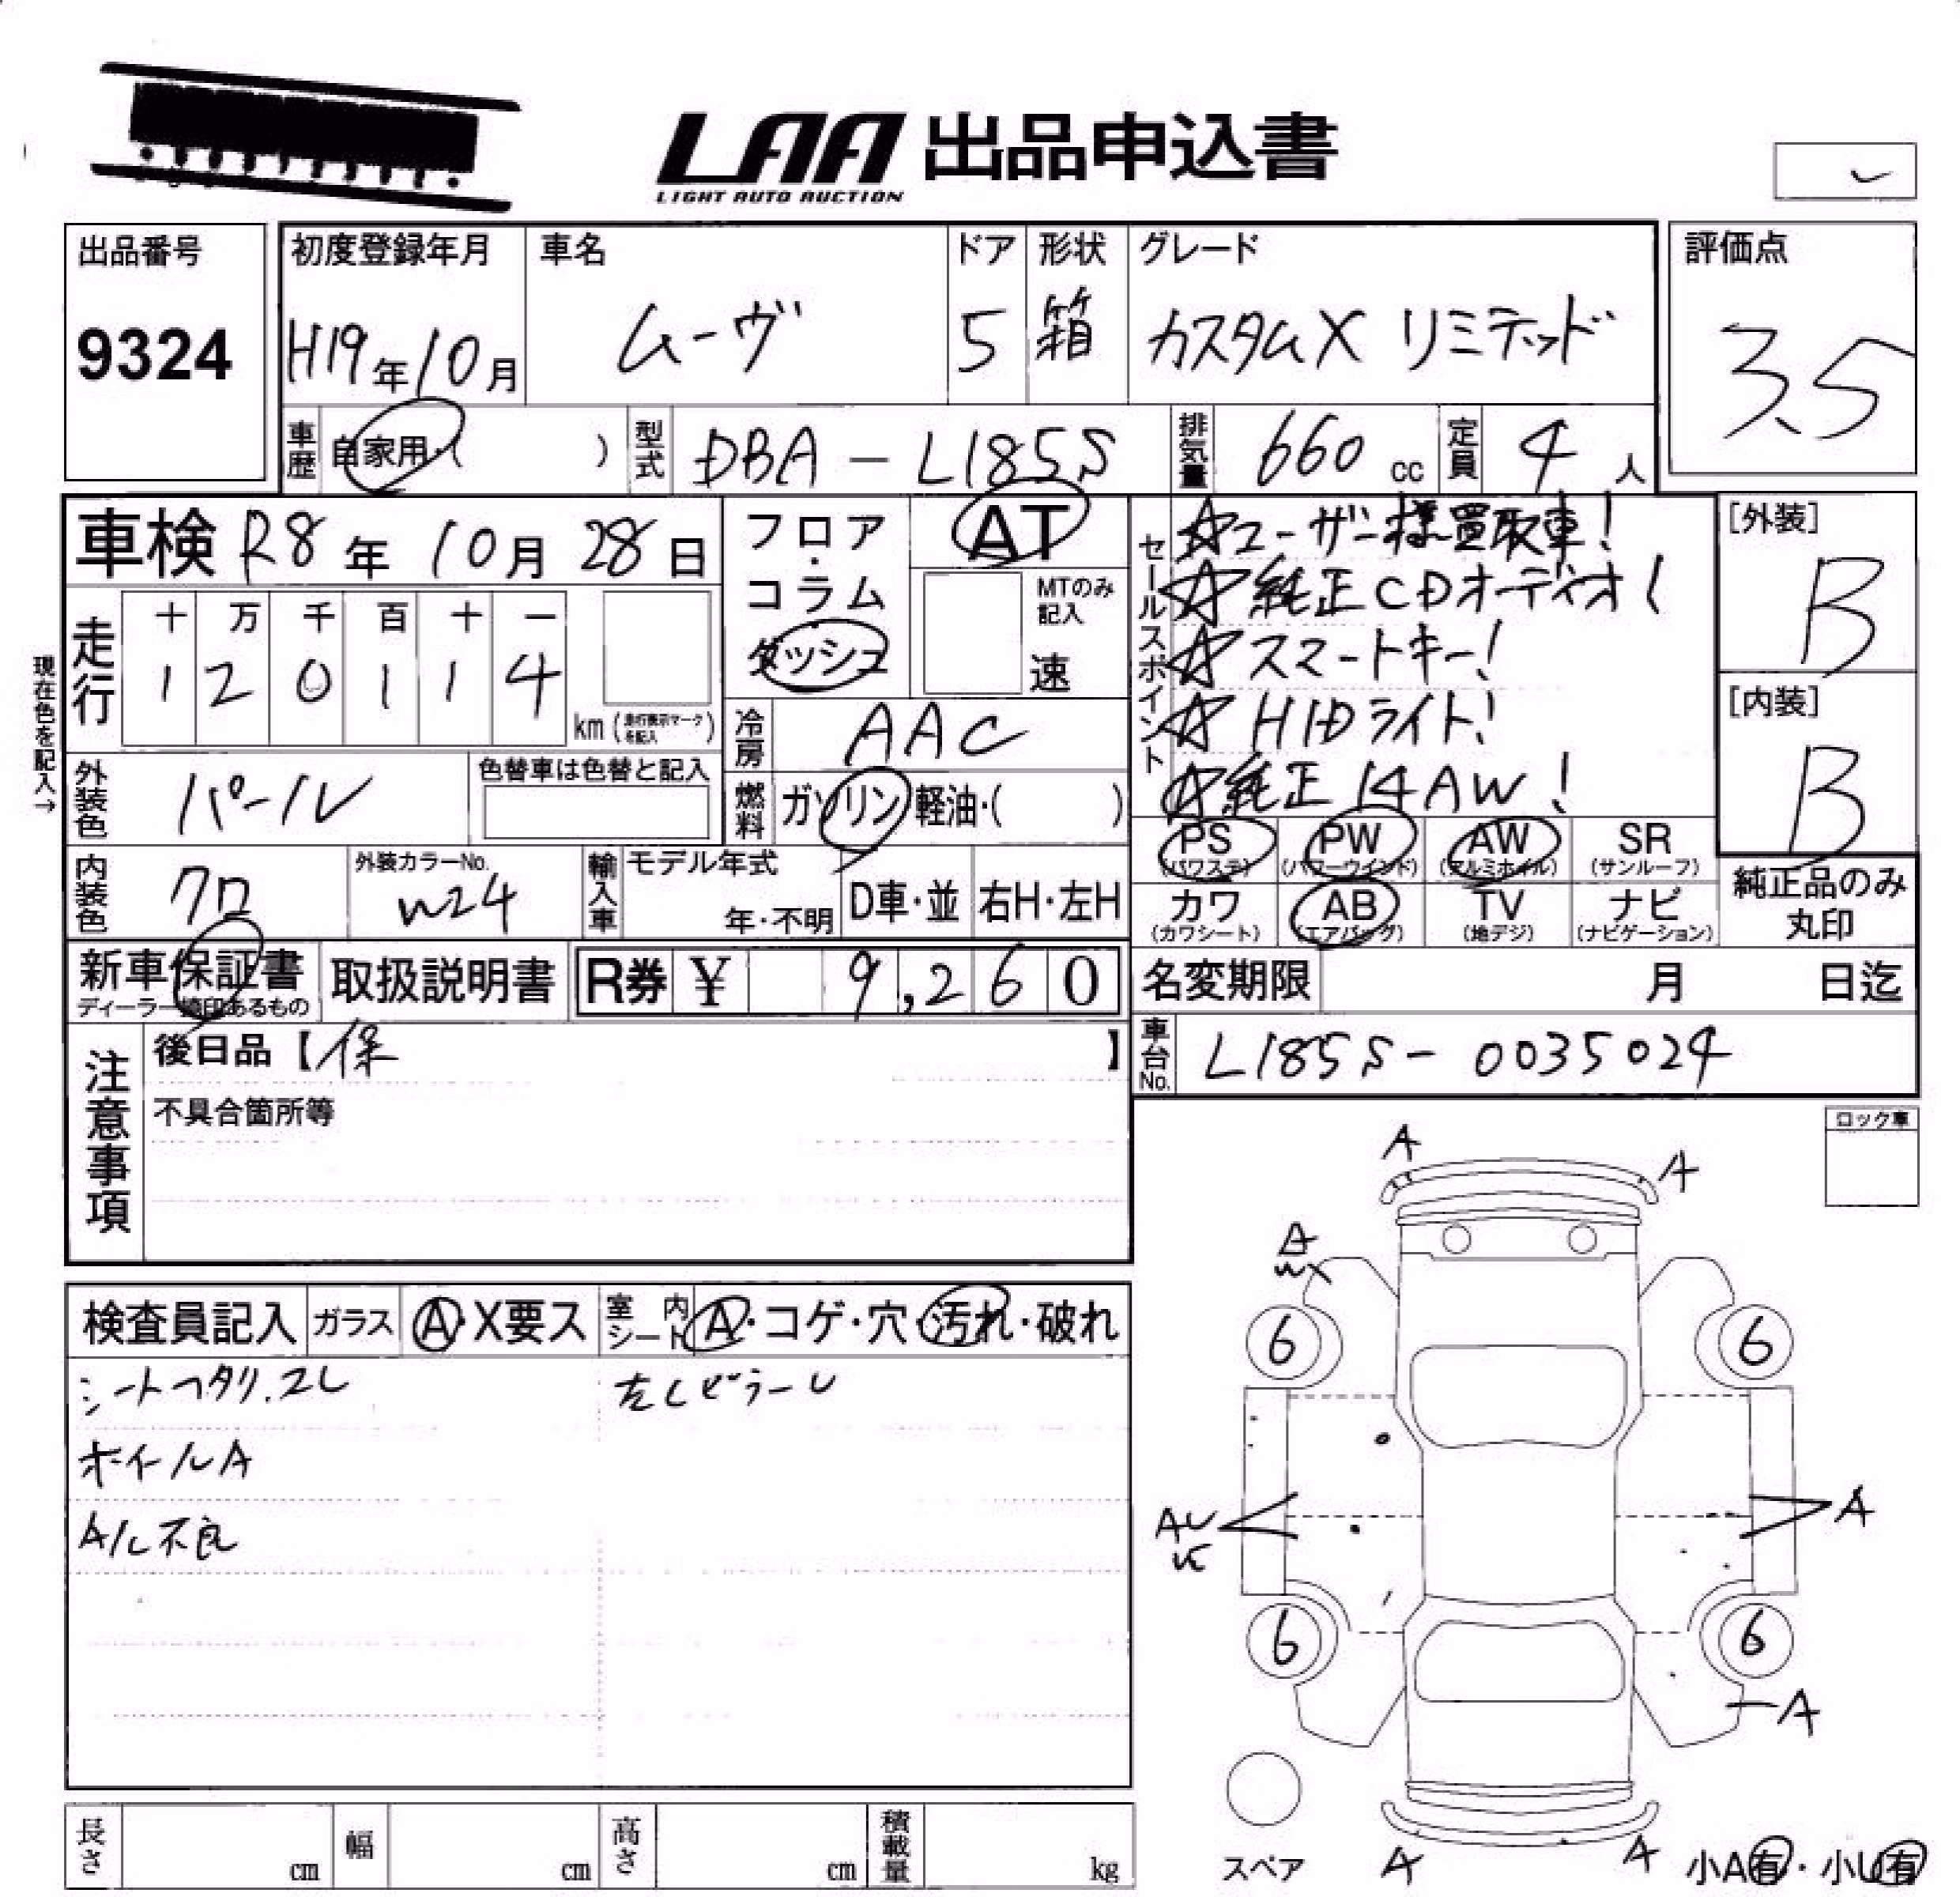 LAA 出品申込書
LIGHT AUTO AUCTION
出品番号
9324
初度登録年月
H19年10月
車名
ムーヴ
ドア
5
形状
箱
グレード
カスタムX リミテッド
評価点
3.5
車歴
自家用・( )
型式
DBA-L185S
排気量
660 cc
定員
4 人
車検 R8年 10月 28日
走行
十 万 千 百 十 一
1 2 0 1 1 4
km (走行表示マークを記入)
現在色を記入→
フロア・コラム
ダッシュ
AT
MTのみ記入
速
セールスポイント
☆ユーザー様買取車!
☆純正CDオーディオ!
☆スマートキー!
☆HIDライト!
☆純正14AW!
[外装]
B
[内装]
B
外装色
パール
色替車は色替と記入
冷房
AAC
燃料
ガソリン・軽油・( )
内装色
クロ
外装カラーNo.
W24
輸入車
モデル年式
年・不明
D車・並
右H・左H
PS (パワステ)
PW (パワーウインド)
AW (アルミホイル)
SR (サンルーフ)
カワ (カワシート)
AB (エアバッグ)
TV (地デジ)
ナビ (ナビゲーション)
純正品のみ丸印
新車保証書
ディーラー捺印あるもの
取扱説明書
R券 ¥ 9,260
名変期限 月 日迄
注意事項
後日品【保 】
不具合箇所等
車台No.
L185S-0035024
ロック車
検査員記入
ガラス
A・X要ス
室内シート
A・コゲ・穴・汚れ・破れ
シートヘタリ.スレ
左しピラーU
ホイールA
A/C不良
A
A
A
6
6
AU
A
6
6
A
スペア
A
A
小A有・小U有
長さ cm
幅 cm
高さ cm
積載量 kg